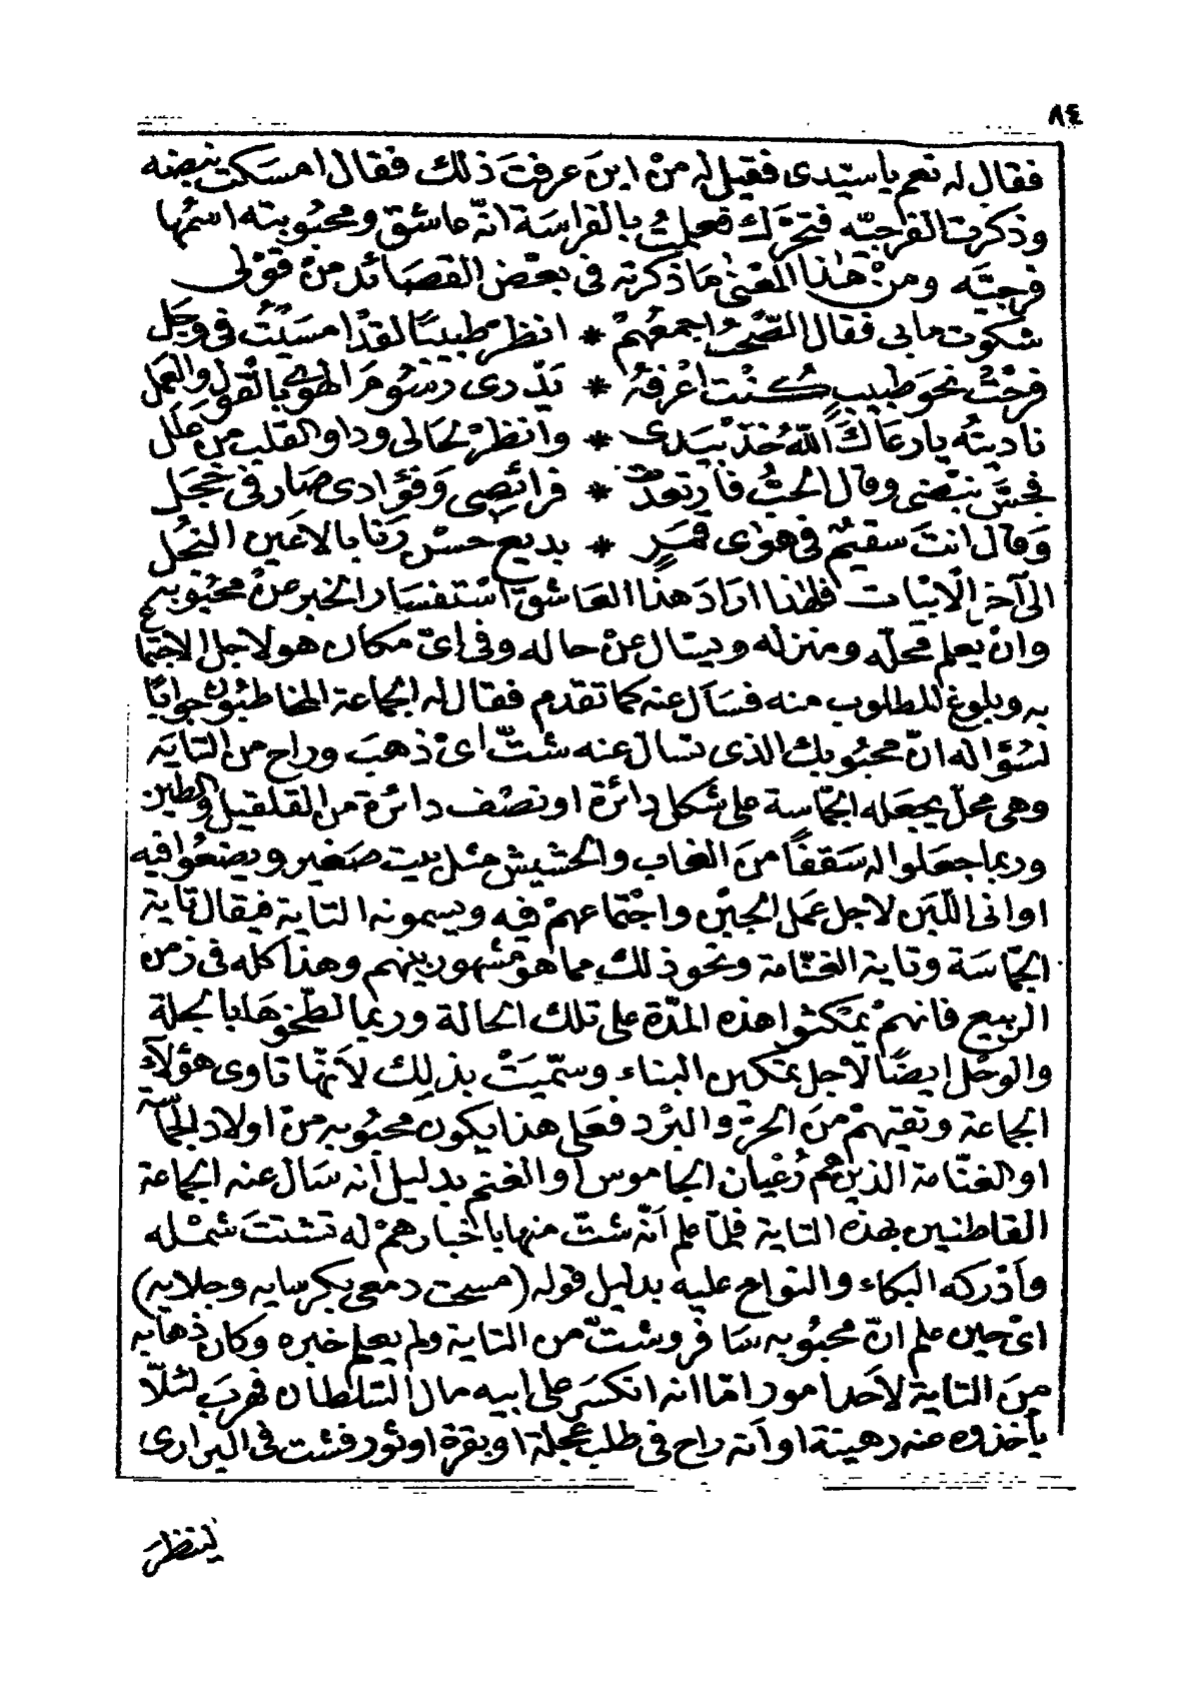 ٨٤
فقال له نعم يا سيّدى فقيل له منْ اينَ عرفتَ ذلك فقال امسَكت نبضه
وذكرت الفرجيّه فتحرَّك فعلمتُ بالفراسَة انّه عاشق ومحبُوبته اسمُها
فرجيَّه ومنْ هٰذا المعْنىٰ مَا ذكرته فى بعْض القصَائد منْ قوْلى
شكوت مابى فقال الصَّحْبُ اجمعُهمْ * انظرْ طبيبًا لقدْ امسَيْتُ فى وجَل
فرحْتُ نحوَ طبيبٍ كُنْت اعْرفهُ * يَدْرى رسُومَ الهوىٰ بالقوْل والعمَل
ناديتُه يارعَاكَ اللهُ خذْ بيَدى * وانظرْ لحَالى وداو القلب من عِلَل
فجسَّ نبْضى وقال الحبُّ فارتعدتْ * فرائصِى وَفؤادى صَار فى خجَل
وَقال انتَ سقيمٌ فى هوٰى قمَرٍ * بديع حسْن رَنا بالاعْين النجُل
الى آخر الابْيات فلهٰذا ارَادَ هذا العَاشق اسْتفسَار الخبر عنْ محبُوبه
وانْ يعلم محلّه ومنزله ويسَال عنْ حاله وفى اىّ مكان هو لاجل الاجتماع
به وبلوغ المطلوب منه فسَأل عنه كما تقدم فقال له الجماعة المخاطبُون جوابًا
لسُؤاله انّ محبُوبك الذى تسال عنه شتّ اىْ ذهبَ وراح من التايَه
وهى محلّ يجعَله الجمّاسة على شكل دائرة او نصْف دائرة من القلقيل والطين
وربما جعَلوا له سَقفًا منَ الغاب والحشيش مثل بيت صَغير ويضعُوا فيه
اوانى اللّبَن لاجل عَمل الجبْن واجْتماعهمْ فيه ويسمونه التاية فيقال تاية
الجمّاسَة وتاية الغنّامة ونحو ذلك مما هو مشهور بينهم وهذا كله فى زمن
الربيع فانهمْ يمْكثوا هذه المدّة على تلك الحالة وربما لطّخوهَا بالجلة
والوحْل ايضًا لاجل تمكين البناء وسمّيَتْ بذلِك لأنهّا تاوى هؤلآءِ
الجماعة وتقيهمْ منَ الحرّ والبرْد فعَلى هذا يكون محبُوبه منْ اولاد الجمّاسَة
او الغنّامة الذين هُم رُعْيان الجاموس او الغنم بدليل أنه سَال عنه الجماعة
القاطنين بهذه التاية فلمّا علم أنّه شتّ منها باخبارهمْ له تشتتَ شمْله
وأدركه البكاء والنواح عليه بدليل قوله (مسحت دمعى بكرسايه وجلايه)
اىْ حين علم انّ محبُوبه سَافر وشتّ من التاية ولم يعلم خبره وكان ذهابه
منَ التاية لأحد امور امّا انه انكسَر على ابيه مال السّلطان فهرَب لئلّا
يأخذوه عنه رهينة او أنه راح فى طلب عجْلة او بقرة او ثور فشت فى البرارى
لينظرَ